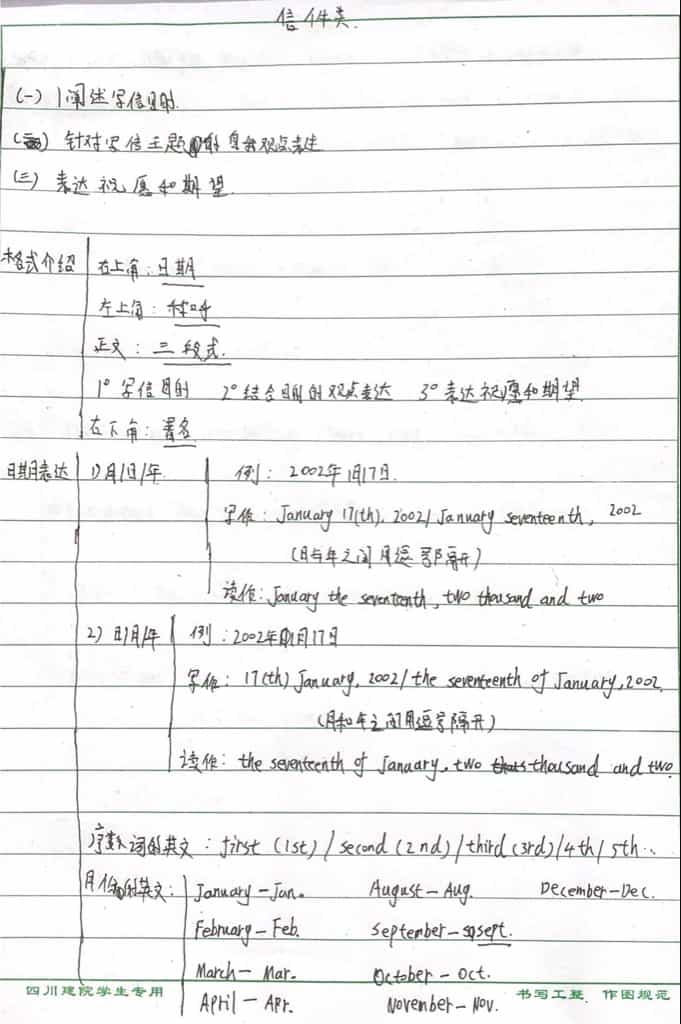 信件类.
(一) 阐述写信目的.
(二) 针对写信主题的自我观点表述
(三) 表达祝愿和期望.
格式介绍 右上角: 日期
左上角: 称呼
正文: 三段式.
1° 写信目的 2° 结合目的的观点表达 3° 表达祝愿和期望.
右下角: 署名
日期表达 1) 月/日/年 例: 2002年1月17日.
写作: January 17(th), 2002/January seventeenth, 2002
(日与年之间用逗号隔开)
读作: January the seventeenth, two thousand and two
2) 日/月/年 例: 2002年1月17日
写作: 17(th) January, 2002/the seventeenth of January, 2002.
(月和年之间用逗号隔开)
读作: the seventeenth of January, two thousand and two.
序数词的英文: first (1st) / second (2nd) / third (3rd) / 4th / 5th...
月份的英文: January—Jan. August—Aug. December—Dec.
February—Feb. September—sept.
March—Mar. October—Oct.
April—Apr. November—Nov.
四川建院学生专用 书写工整 作图规范